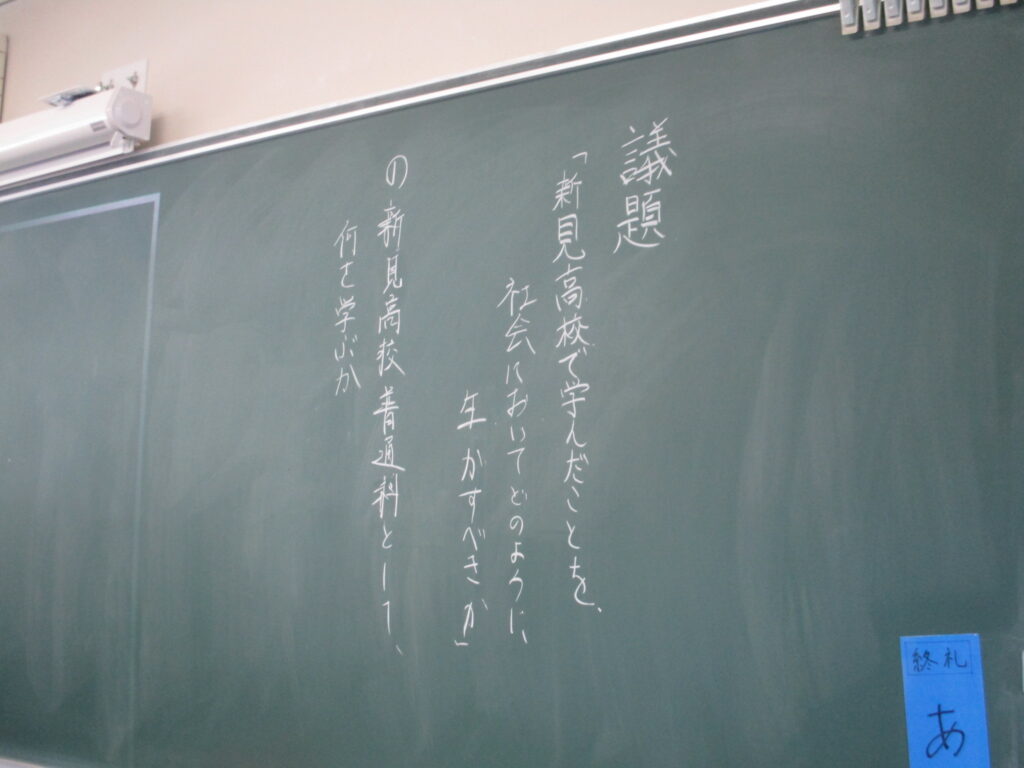 議題
「新見高校で学んだことを、
社会においてどのように、
生かすべきか」
の新見高校普通科として、
何を学ぶか
終礼
あ